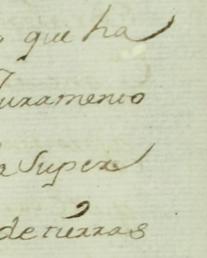 que ha
Juramento
Super
de tierras